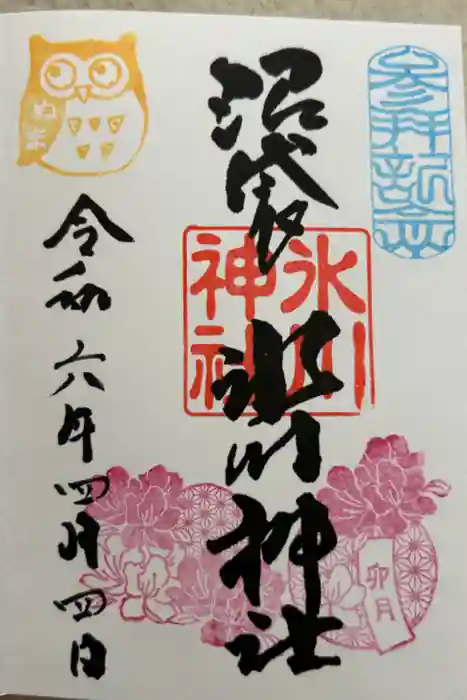 参拝記念
沼袋
氷川神社
氷川
神社
令和六年四月四日
卯月